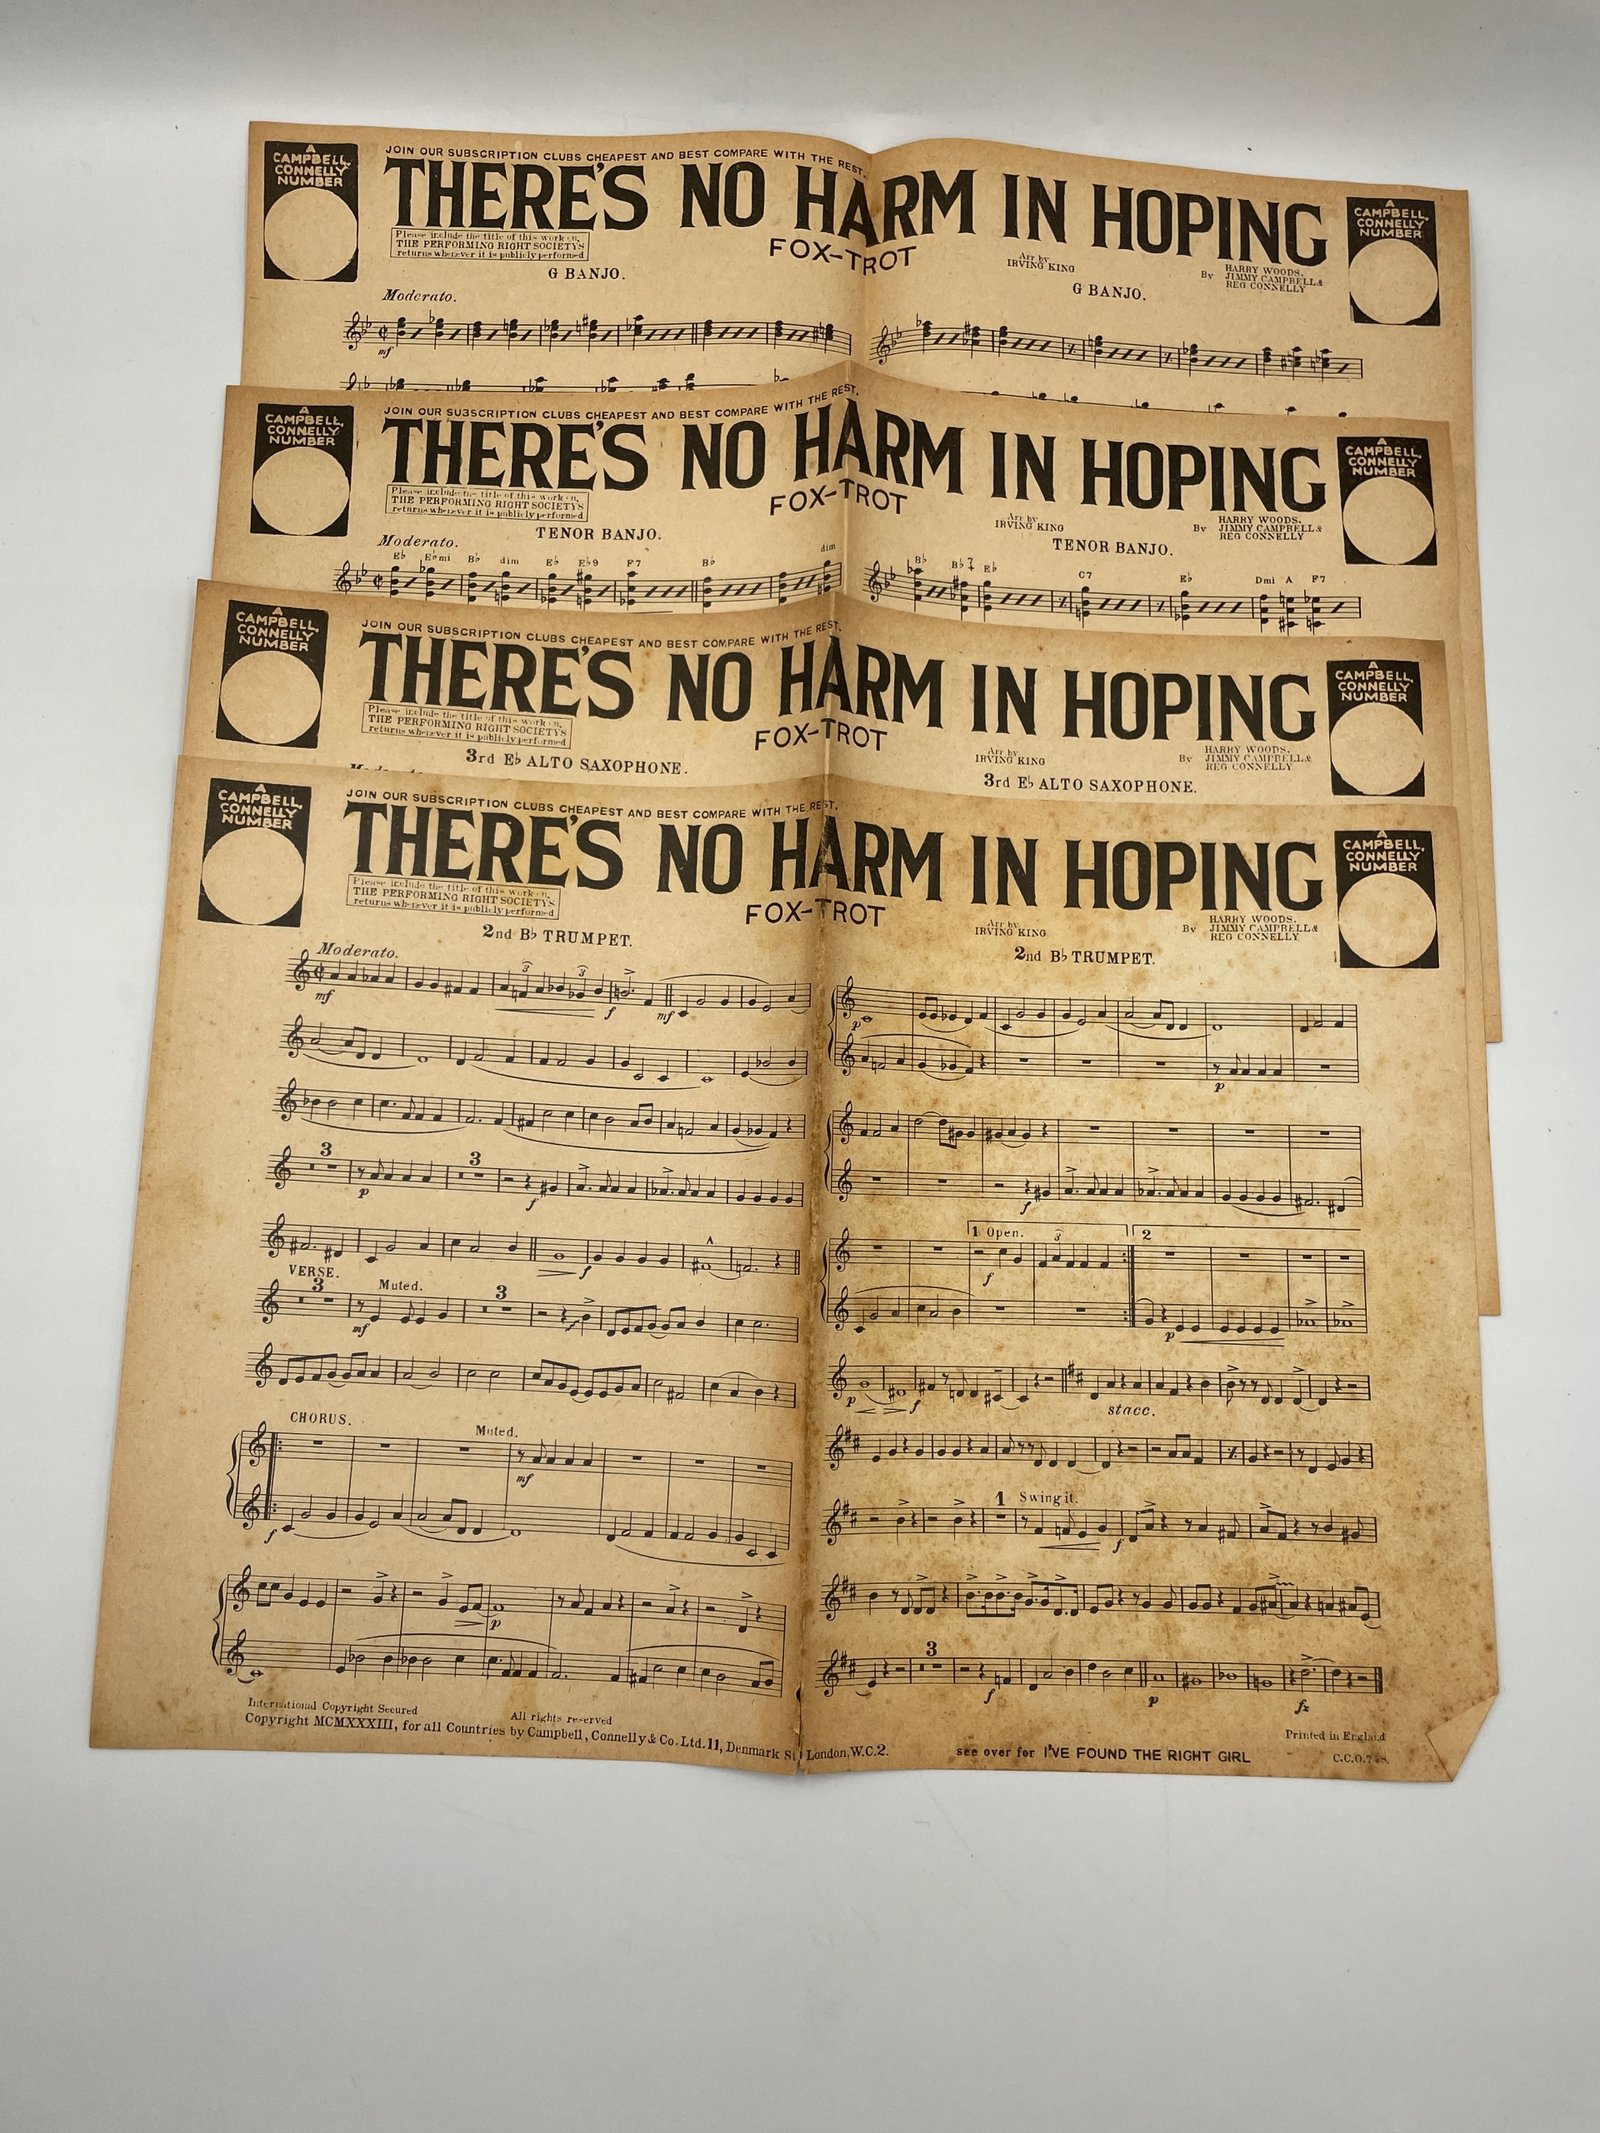 A
CAMPBELL,
CONNELLY
NUMBER
JOIN OUR SUBSCRIPTION CLUBS CHEAPEST AND BEST COMPARE WITH THE REST.
THERE'S NO HARM IN HOPING
Please include the title of this work on,
THE PERFORMING RIGHT SOCIETY'S
returns wherever it is publicly performed
FOX-TROT
Arr by
IRVING KING
By HARRY WOODS,
JIMMY CAMPBELL &
REG CONNELLY
A
CAMPBELL,
CONNELLY
NUMBER
G BANJO.
G BANJO.
Moderato.
mf
A
CAMPBELL,
CONNELLY
NUMBER
JOIN OUR SUBSCRIPTION CLUBS CHEAPEST AND BEST COMPARE WITH THE REST.
THERE'S NO HARM IN HOPING
Please include the title of this work on,
THE PERFORMING RIGHT SOCIETY'S
returns wherever it is publicly performed
FOX-TROT
Arr by
IRVING KING
By HARRY WOODS,
JIMMY CAMPBELL &
REG CONNELLY
A
CAMPBELL,
CONNELLY
NUMBER
TENOR BANJO.
TENOR BANJO.
Moderato.
E♭ E♭mi B♭ dim E♭ E♭9 F7 B♭ dim
B♭ B♭7 E♭ C7 E♭ Dmi A F7
A
CAMPBELL,
CONNELLY
NUMBER
JOIN OUR SUBSCRIPTION CLUBS CHEAPEST AND BEST COMPARE WITH THE REST.
THERE'S NO HARM IN HOPING
Please include the title of this work on,
THE PERFORMING RIGHT SOCIETY'S
returns wherever it is publicly performed
FOX-TROT
Arr by
IRVING KING
By HARRY WOODS,
JIMMY CAMPBELL &
REG CONNELLY
A
CAMPBELL,
CONNELLY
NUMBER
3rd E♭ ALTO SAXOPHONE.
3rd E♭ ALTO SAXOPHONE.
A
CAMPBELL,
CONNELLY
NUMBER
JOIN OUR SUBSCRIPTION CLUBS CHEAPEST AND BEST COMPARE WITH THE REST.
THERE'S NO HARM IN HOPING
Please include the title of this work on,
THE PERFORMING RIGHT SOCIETY'S
returns wherever it is publicly performed
FOX-TROT
Arr by
IRVING KING
By HARRY WOODS,
JIMMY CAMPBELL &
REG CONNELLY
A
CAMPBELL,
CONNELLY
NUMBER
2nd B♭ TRUMPET.
Moderato.
3 3
mf f mf
3 3
p f
f
VERSE.
3 Muted. 3
mf
CHORUS.
Muted.
mf
f
p
2nd B♭ TRUMPET.
p
p
f
1 Open. 3 2
f
p
p f
stacc.
1 Swing it.
f
3
f p fz
International Copyright Secured
All rights reserved
Copyright MCMXXXIII, for all Countries by Campbell, Connelly & Co. Ltd. 11, Denmark St London, W.C.2.
see over for I'VE FOUND THE RIGHT GIRL
Printed in England